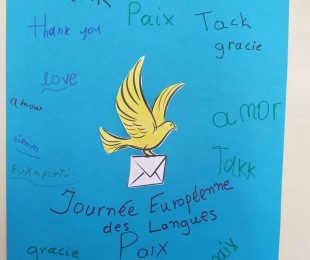 Paix
Tack
thank you
gracie
love
amour
amor
Takk
Journée Européenne
des Langues
Paix
gracie
paix